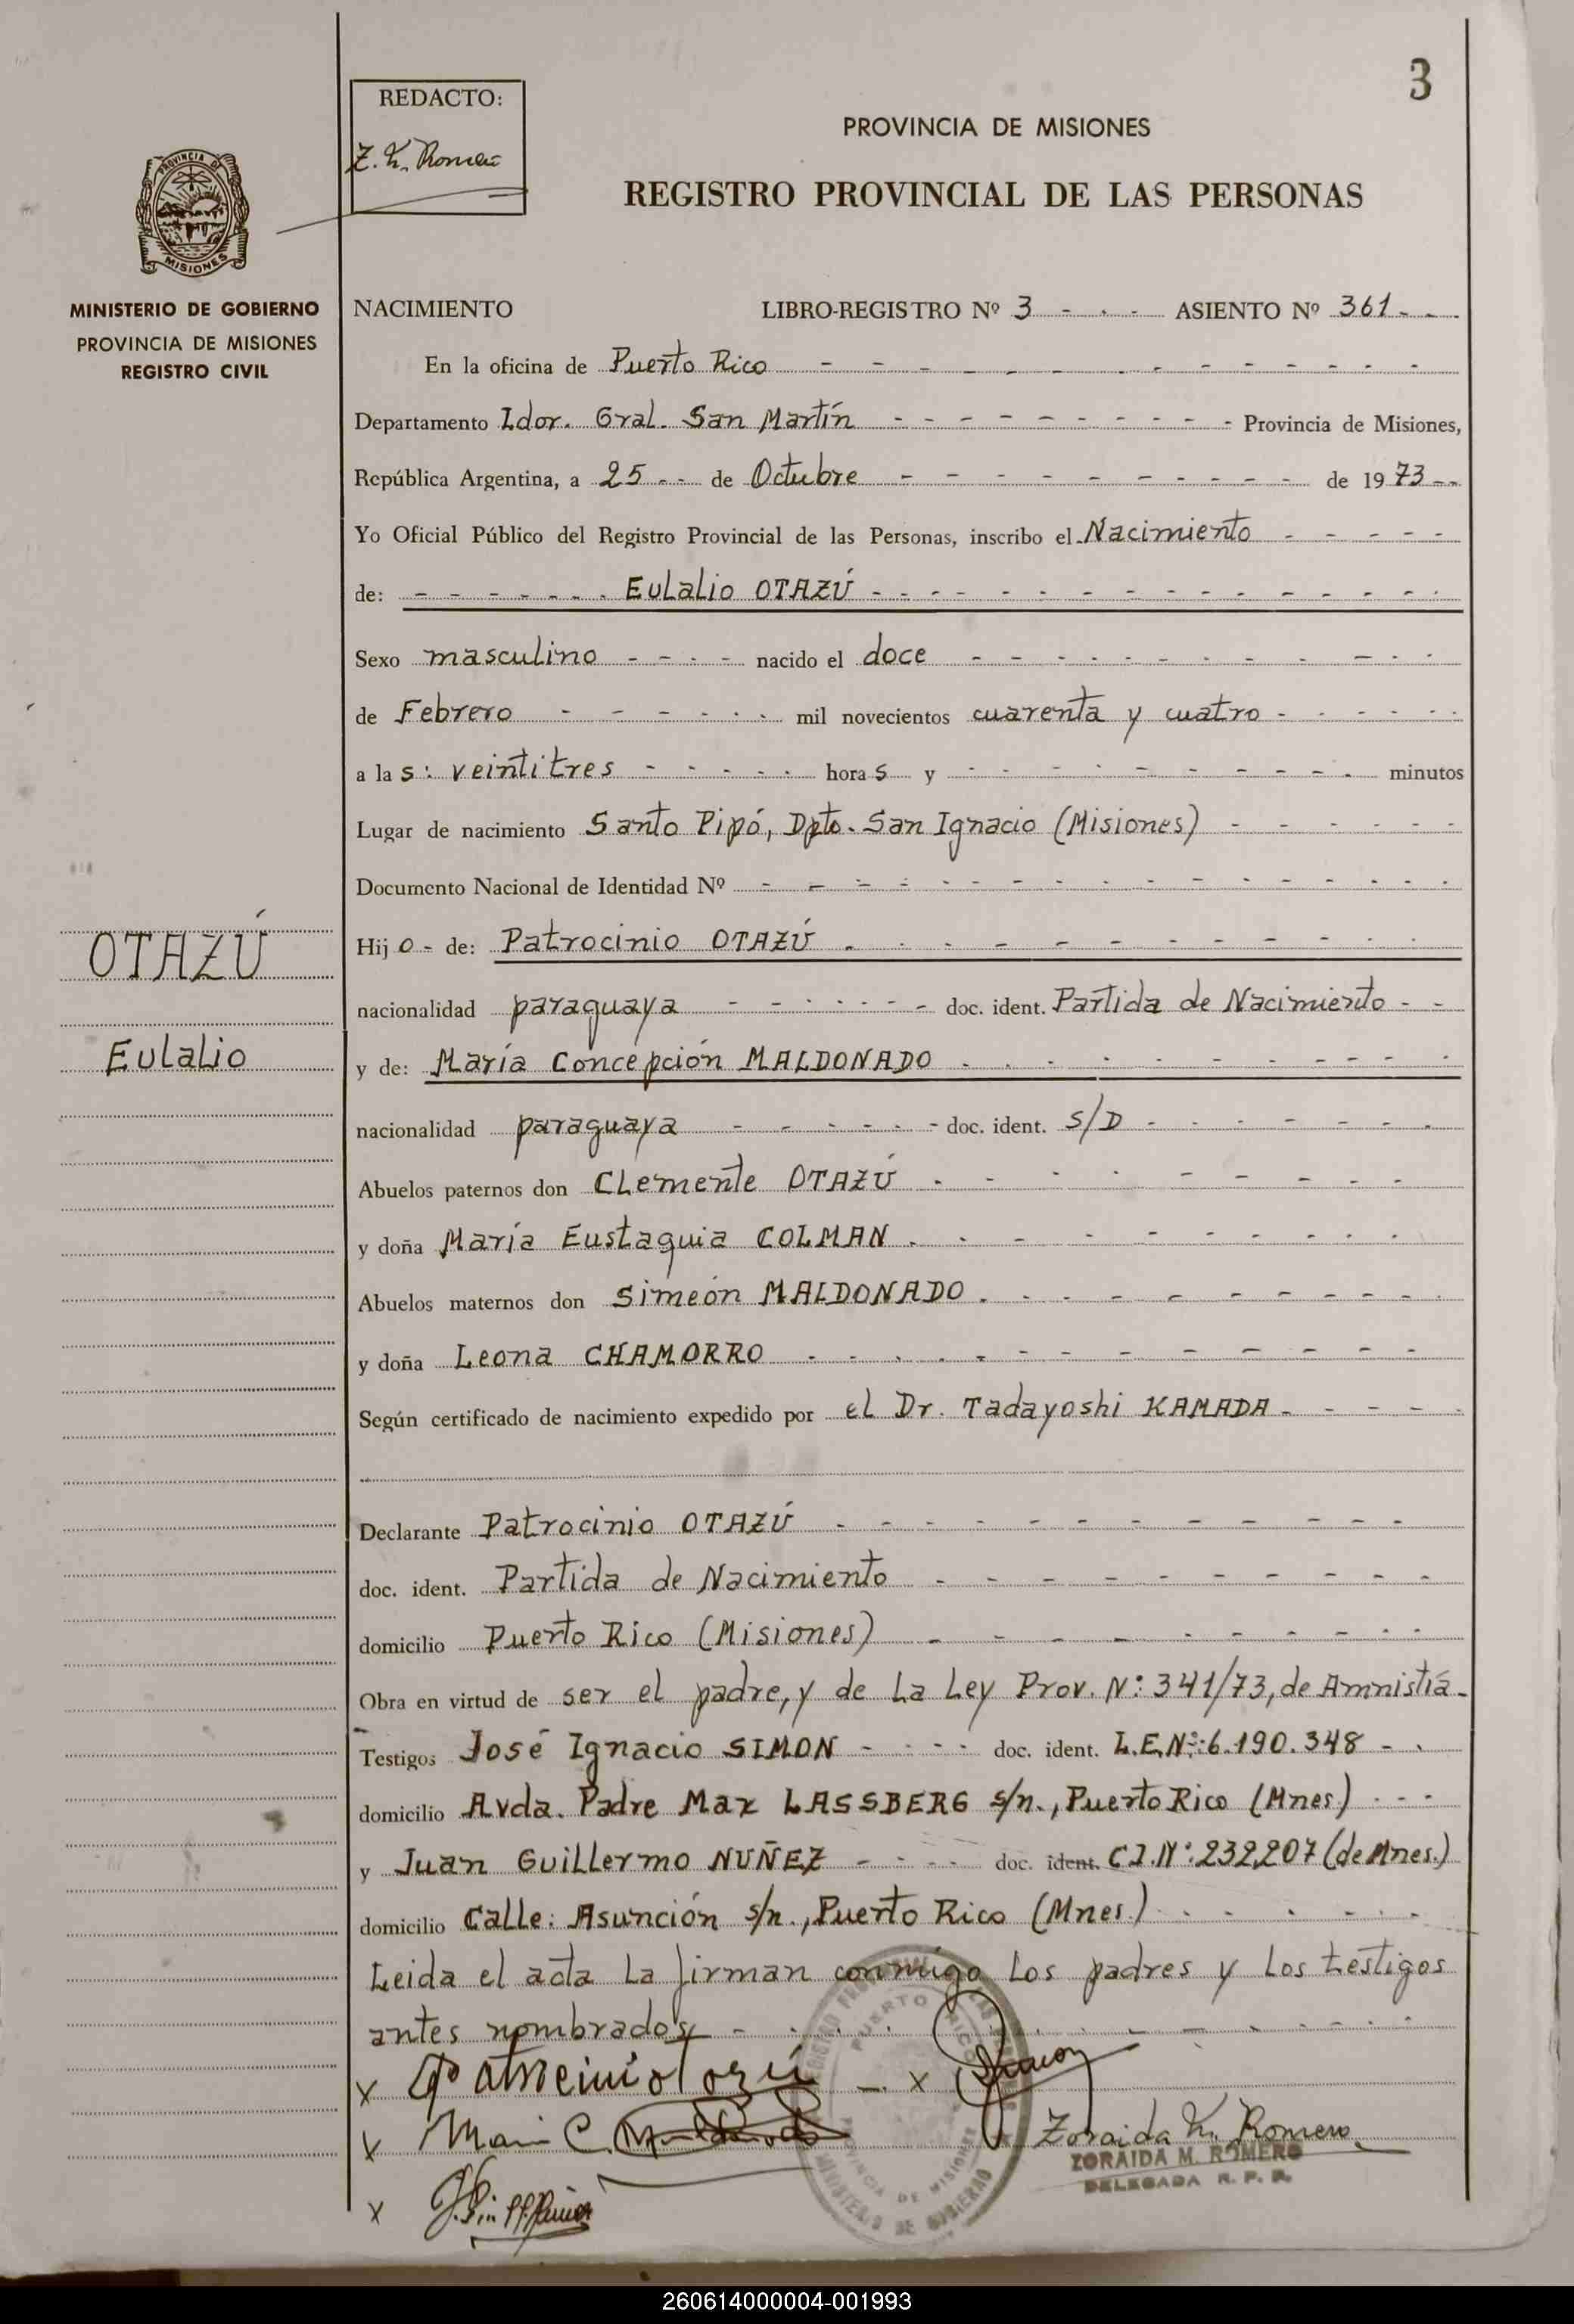 3
REDACTO:
Z. M. Romero
PROVINCIA DE MISIONES
REGISTRO PROVINCIAL DE LAS PERSONAS
PROVINCIA DE
MISIONES
MINISTERIO DE GOBIERNO
PROVINCIA DE MISIONES
REGISTRO CIVIL
NACIMIENTO LIBRO-REGISTRO Nº 3 - . - ASIENTO Nº 361 - -
En la oficina de Puerto Rico
Departamento Ldor. Gral. San Martín Provincia de Misiones,
República Argentina, a 25 - - de Octubre de 1973 - -
Yo Oficial Público del Registro Provincial de las Personas, inscribo el Nacimiento
de: Eulalio OTAZÚ
Sexo masculino nacido el doce
de Febrero mil novecientos cuarenta y cuatro
a las: veintitres horas y minutos
Lugar de nacimiento Santo Pipó, Dpto. San Ignacio (Misiones)
Documento Nacional de Identidad Nº
OTAZÚ
Eulalio
Hijo - de: Patrocinio OTAZÚ
nacionalidad paraguaya doc. ident. Partida de Nacimiento
y de: María Concepción MALDONADO
nacionalidad paraguaya doc. ident. S/D
Abuelos paternos don Clemente OTAZÚ
y doña María Eustaquia COLMAN
Abuelos maternos don Simeón MALDONADO
y doña Leona CHAMORRO
Según certificado de nacimiento expedido por el Dr. Tadayoshi KAMADA
Declarante Patrocinio OTAZÚ
doc. ident. Partida de Nacimiento
domicilio Puerto Rico (Misiones)
Obra en virtud de ser el padre, y de la Ley Prov. Nº: 341/73, de Amnistía
Testigos José Ignacio SIMON doc. ident. L.E.Nº: 6.190.348
domicilio Avda. Padre Max LASSBERG s/n., Puerto Rico (Mnes.)
y Juan Guillermo NUÑEZ doc. ident. C.I.Nº: 232.207 (de Mnes.)
domicilio Calle: Asunción s/n., Puerto Rico (Mnes.)
Leida el acta la firman conmigo los padres y los testigos
antes nombrados
x Patrocinio Otazú x Simon
x Maria C. Maldonado Zoraida M. Romero
ZORAIDA M. ROMERO
DELEGADA R. P. P.
x
PUERTO RICO
PROVINCIA DE MISIONES
MINISTERIO DE GOBIERNO
260614000004-001993